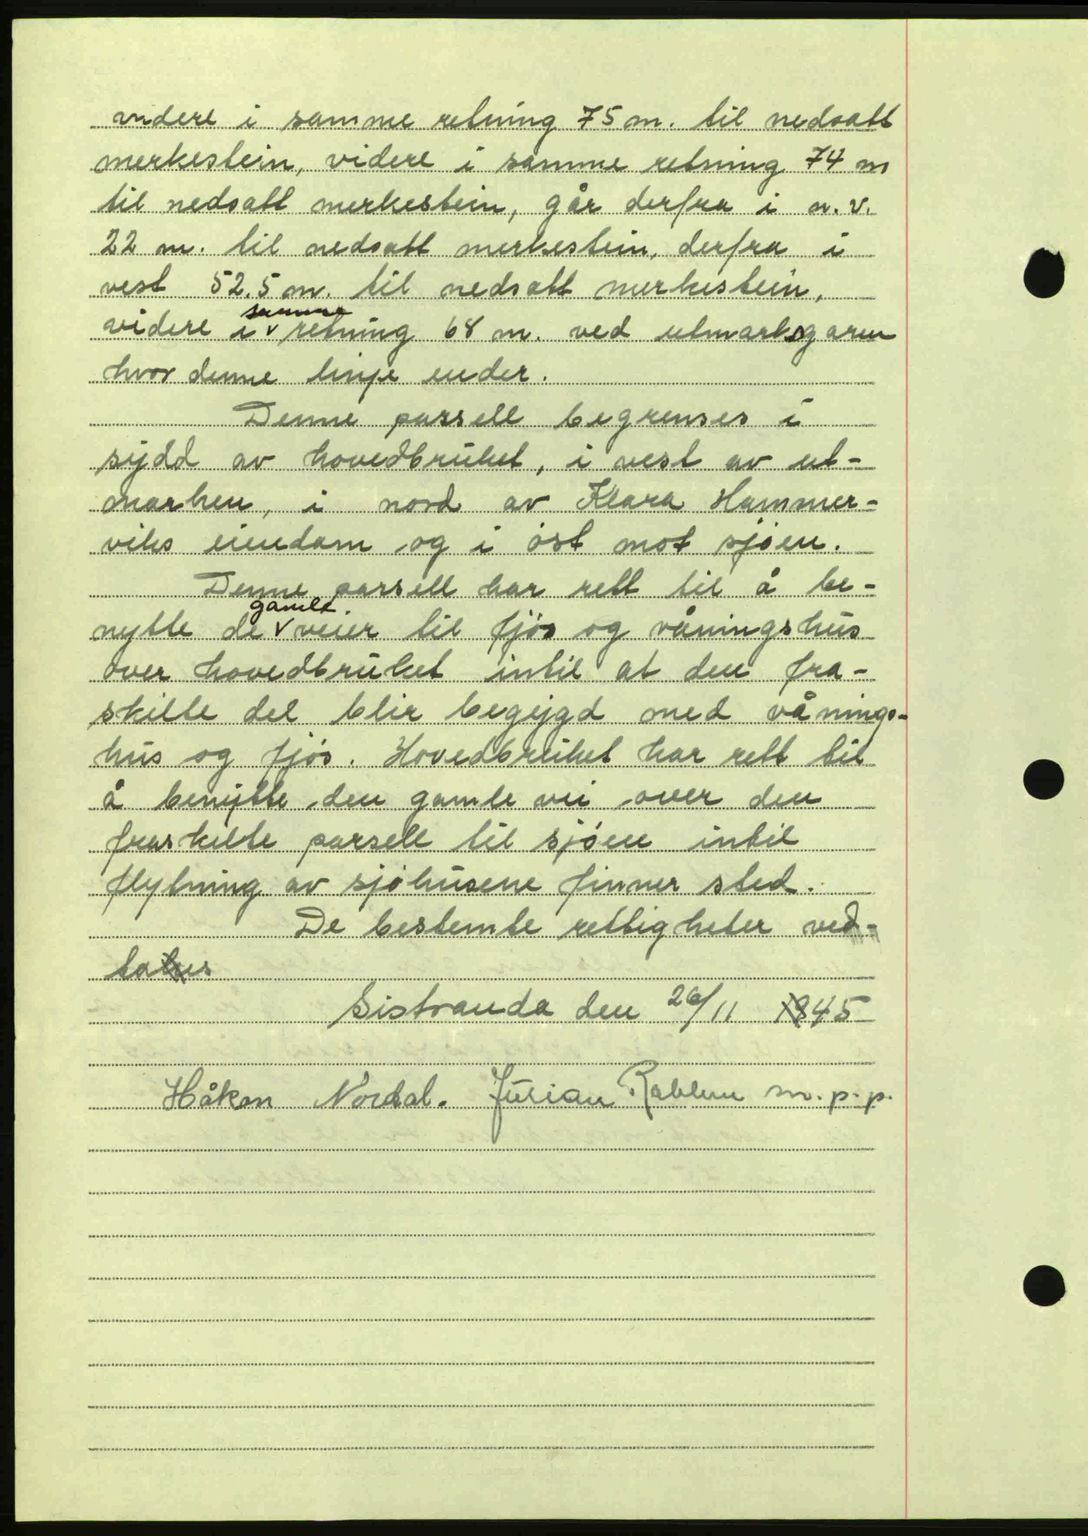 videre i samme retning 75 m. til nedsatt
merkestein, videre i samme retning 74 m
til nedsatt merkestein, går derfra i n.v.
22 m. til nedsatt merkestein, derfra i
vest 52.5 m. til nedsatt merkestein,
videre i samme retning 68 m. ved utmarksgaren
hvor denne linje ender.
Denne parsell begrenses i
sydd av hovedbruket, i vest av ut-
marken, i nord av Klara Hammer-
viks eiendom og i øst mot sjøen.
Denne parsell har rett til å be-
nytte de gamle veier til fjøs og våningshus
over hovedbruket intil at den fra-
skilte del blir begygd med vånings-
hus og fjøs. Hovedbruket har rett til
å benytte den gamle vei over den
fraskilte parsell til sjøen intil
flytning av sjøhusene finner sted.
De bestemte rettigheter ved-
taes
Sistranda den 26/11 1945
Håkon Nordal. Julian m.p.p.